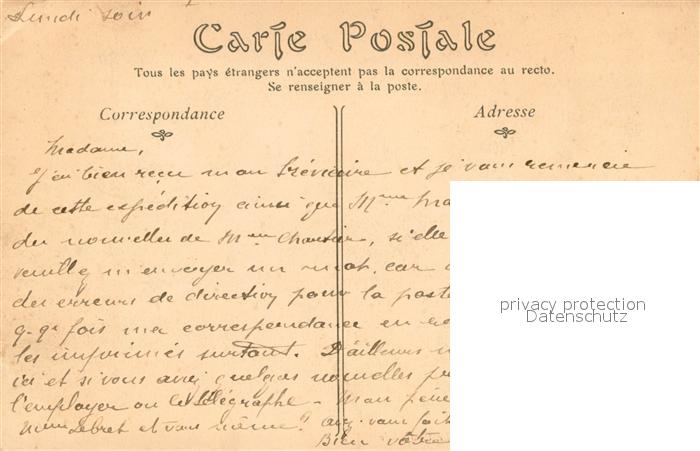 Lundi soir
Carte Postale
Tous les pays étrangers n'acceptent pas la correspondance au recto.
Se renseigner à la poste.
Correspondance
Adresse
Madame,
J'ai bien reçu mon bréviaire et je vous remercie
de cette expédition ainsi que Mme
des nouvelles de Mme, si elle
veuillez m'envoyer un mot, car
des erreurs de direction pour la poste
q.-q. fois ma correspondance en
les imprimés surtout. D'ailleurs
ici et si vous avez quelques nouvelles
l'employer ou le télégraphe - Mon
Lebret et vous même?
Bien vôtre
privacy protection
Datenschutz